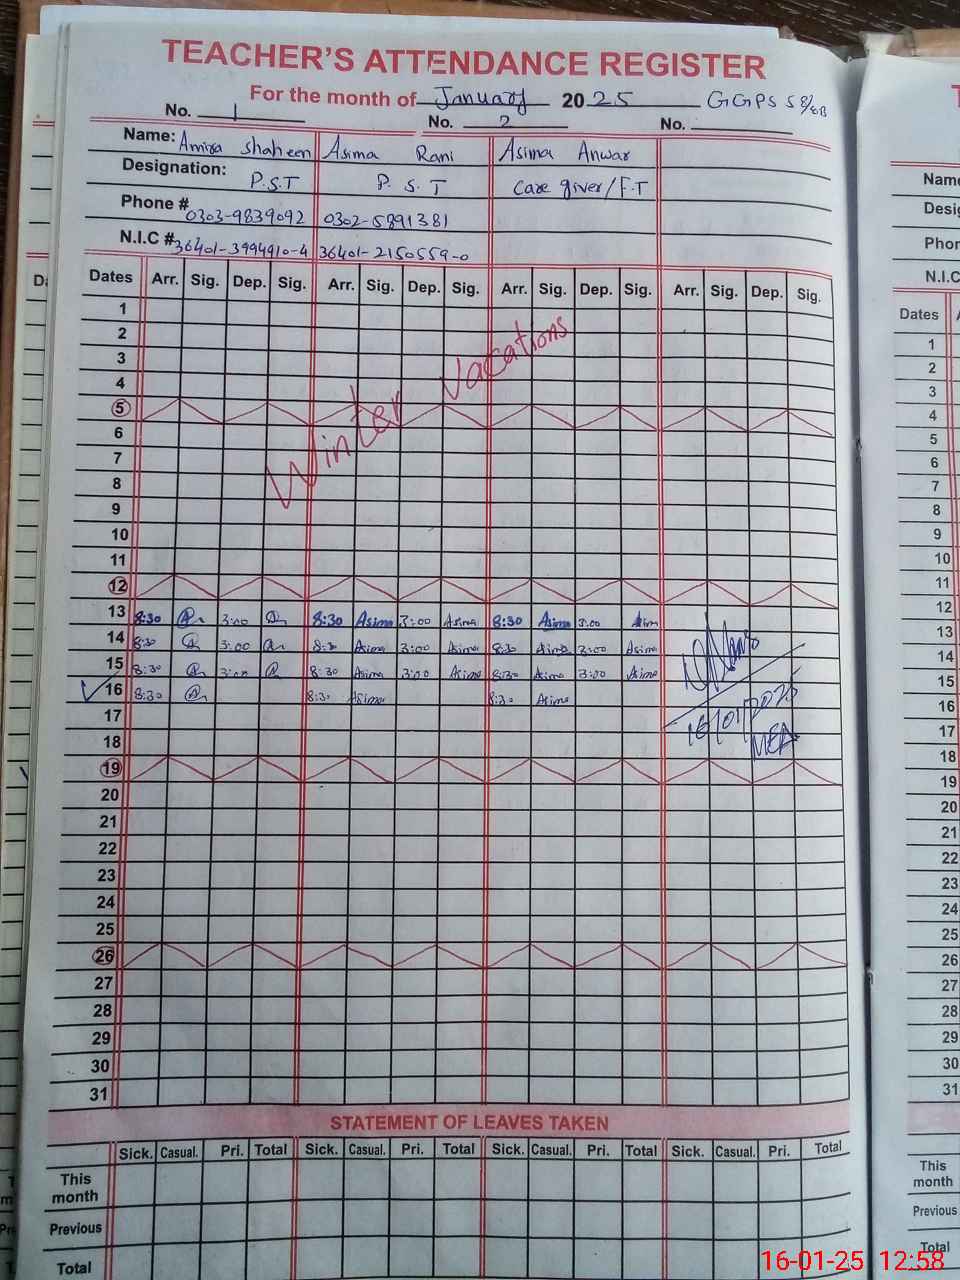 TEACHER'S ATTENDANCE REGISTER
For the month of January 2025 GGPS 58/EB
No. 1 No. 2 No.
Name: Amira Shaheen Asima Rani Asima Anwar
Designation: P.S.T P. S. T Care giver/F.T
Phone # 0303-9839092 0302-5891381
N.I.C # 36401-3994910-4 36401-2150559-0
Dates Arr. Sig. Dep. Sig. Arr. Sig. Dep. Sig. Arr. Sig. Dep. Sig. Arr. Sig. Dep. Sig.
1
2
3
4
5
Winter Vacations
6
7
8
9
10
11
12
13 8:30 3:00 8:30 Asima 3:00 Asima 8:30 Asima 3:00 Asim
14 8:30 3:00 8:30 Asima 3:00 Asima 8:30 Asima 3:00 Asima
15 8:30 3:00 8:30 Asima 3:00 Asima 8:30 Asima 3:00 Asima
16 8:30 8:30 Asima 8:30 Asima
16/01/2025
MEA
17
18
19
20
21
22
23
24
25
26
27
28
29
30
31
STATEMENT OF LEAVES TAKEN
Sick. Casual. Pri. Total Sick. Casual. Pri. Total Sick. Casual. Pri. Total Sick. Casual. Pri. Total
This month
Previous
Total
Name
Desig
Phon
N.I.C
Dates
1
2
3
4
5
6
7
8
9
10
11
12
13
14
15
16
17
18
19
20
21
22
23
24
25
26
27
28
29
30
31
This month
Previous
Total
16-01-25 12:58